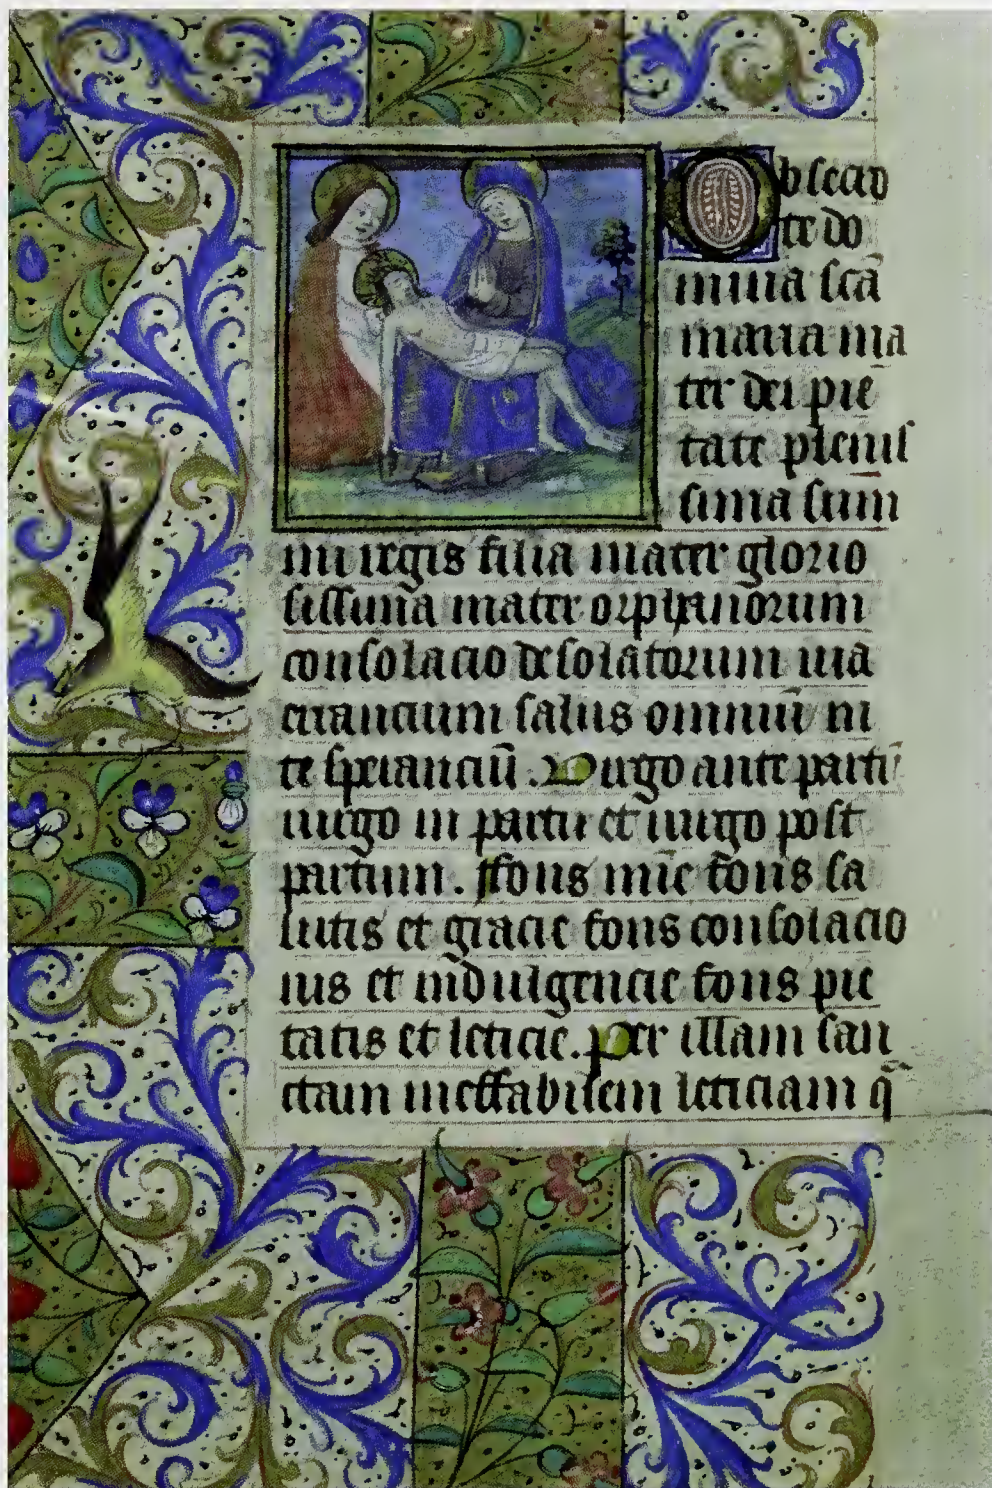 Obsecro
te do
mina scā
maria ma
ter dei pie
tate plenis
sima sum
mi regis filia mater glorio
sissima mater orphanorum
consolacio desolatorum via
errancium salus omniū in
te sperancium̄. Virgo ante partū
virgo in partu et virgo post
partum. ffons mīe fons sa
lutis et gracie fons consolacio
nis et indulgencie fons pie
tatis et leticie. per illam san
ctam ineffabilem leticiam q̄